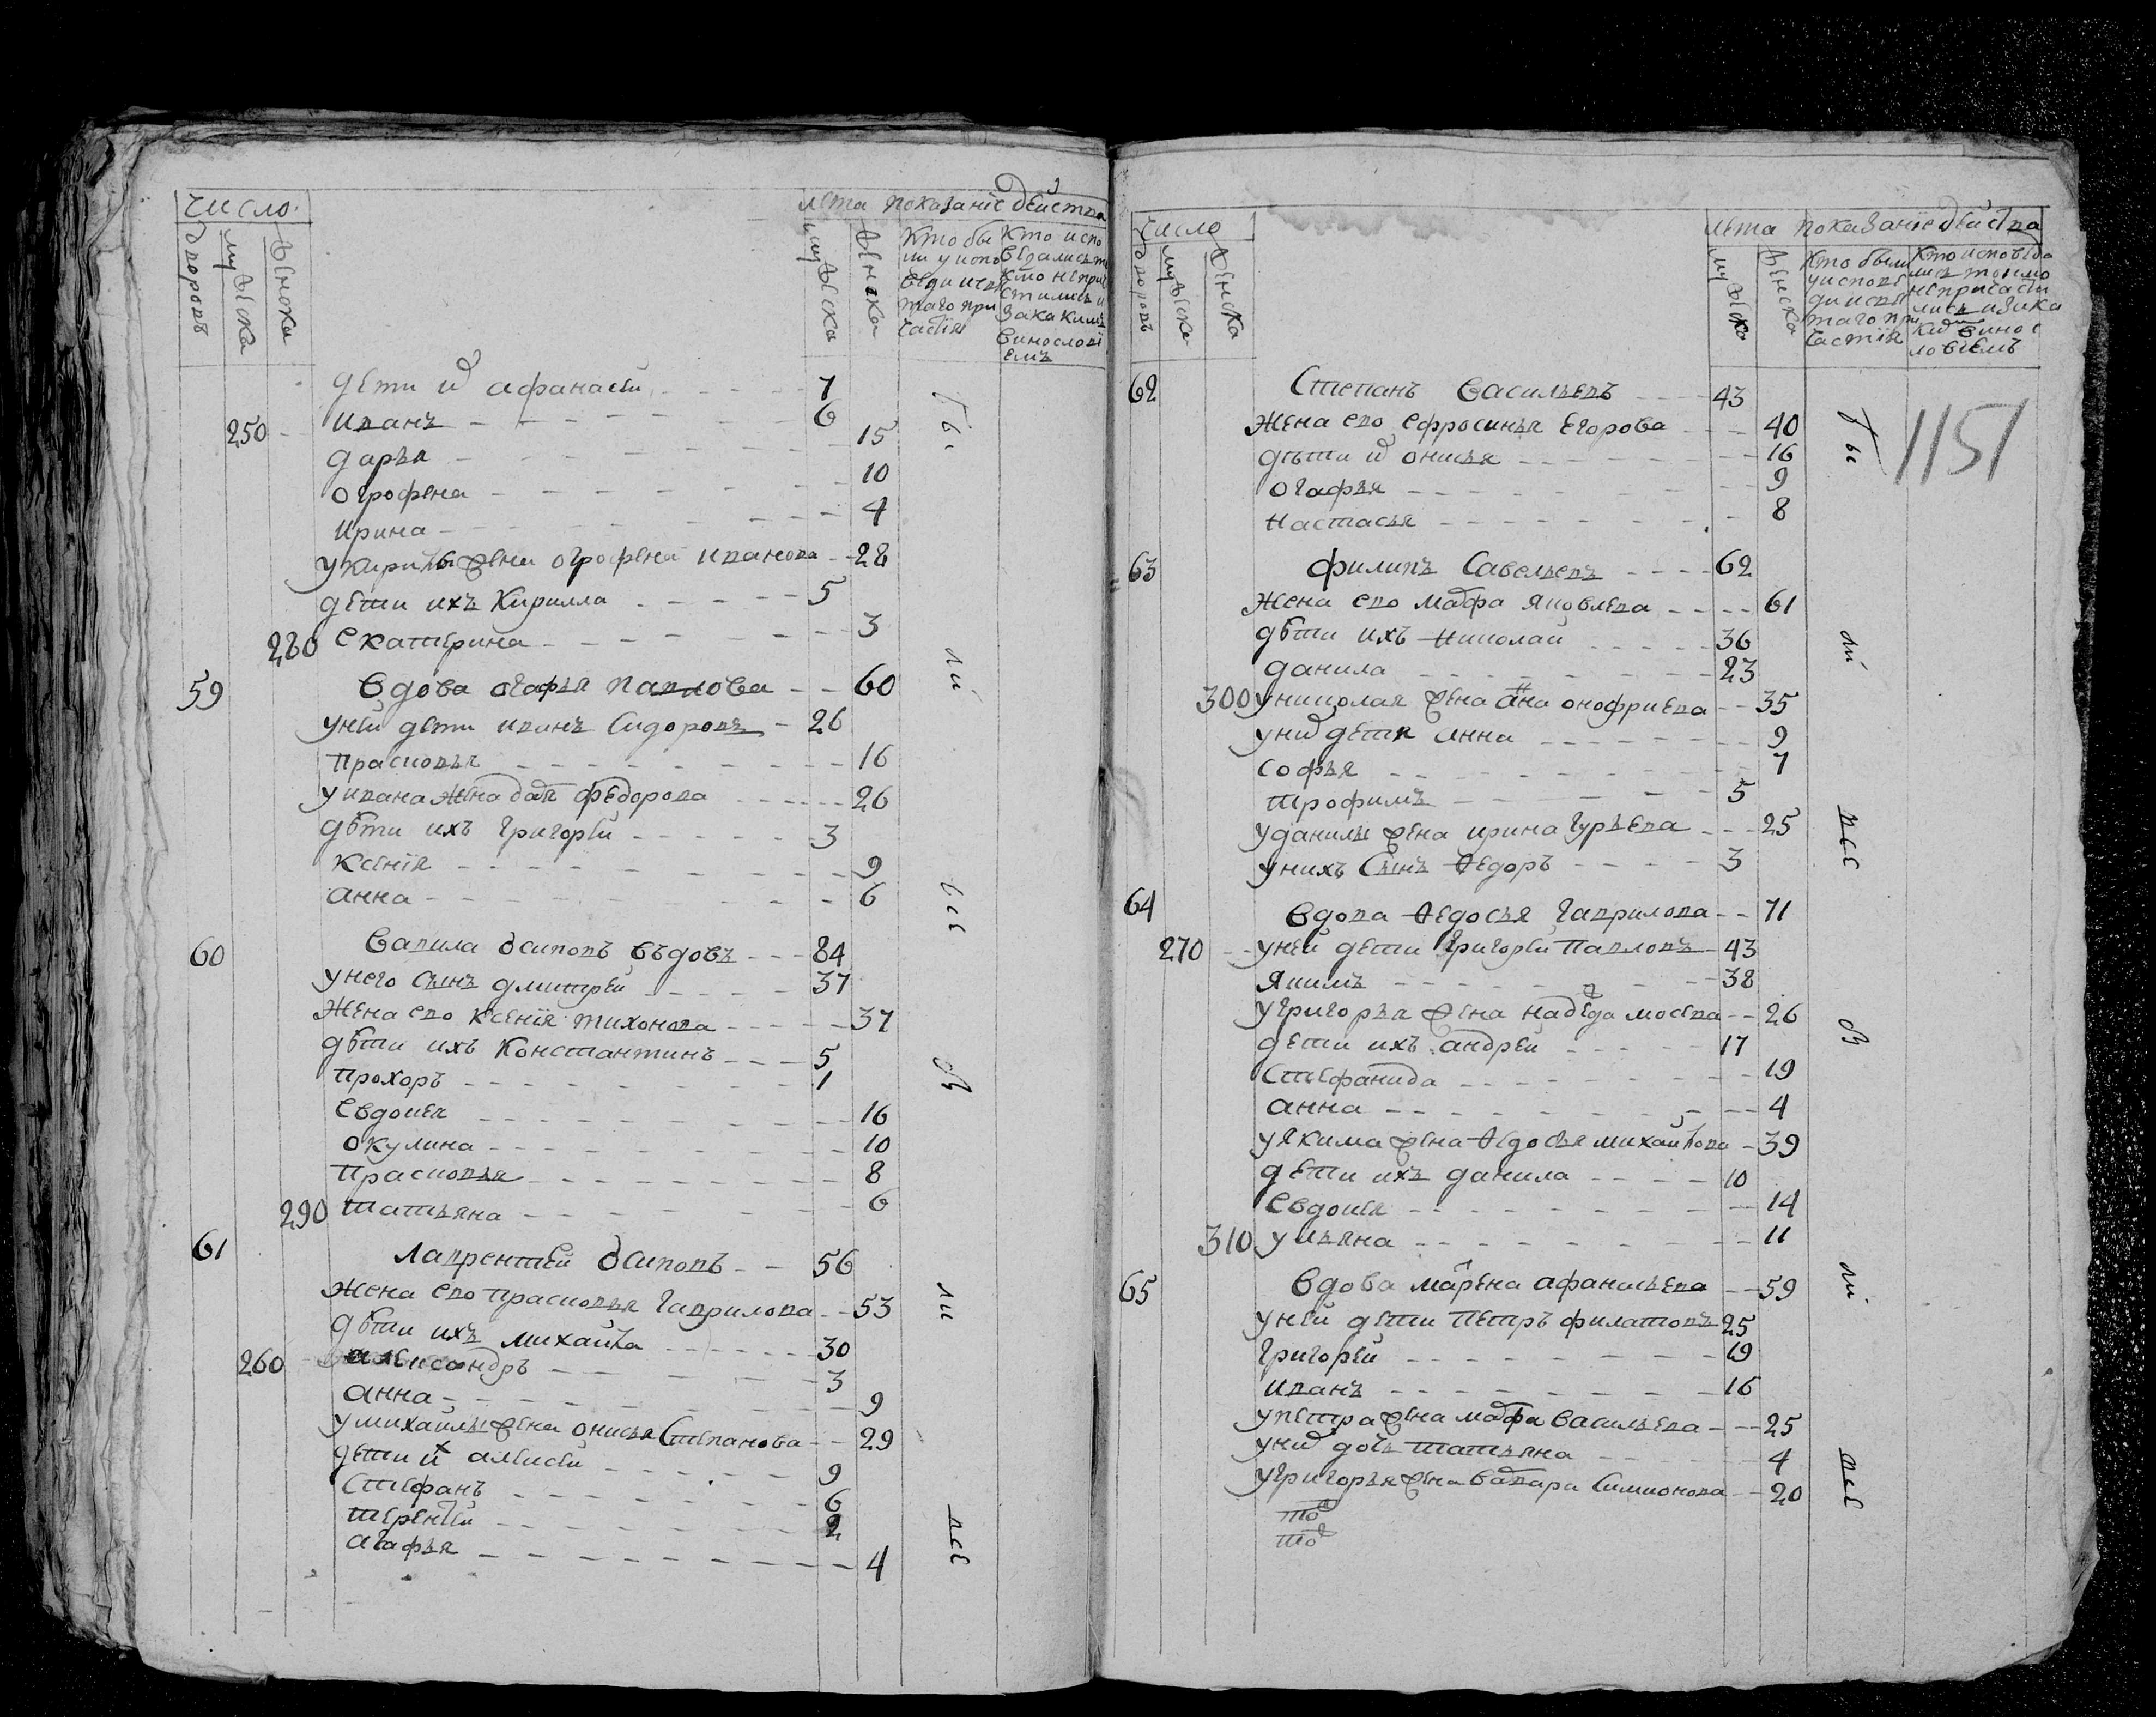 число
дворовъ
мужеска
женска
лѣта показаніе дѣйства
мужеска
женска
Кто бы
ли у испо
вѣди и свя
таго при
частія
Кто испо
ведались то
кмо не при
стились и
за какимъ
винослові
емъ
дети их афанасей 7
250 иванъ 6
дарья 15
огрофена 10
ирина 4
у кирилы жена огрофена иванова 28
дети ихъ Кирилла 5
280 екатерина 3
59 вдова огафья павлова 60
у ней дети иванъ Сидоровъ 26
прасковья 16
у ивана жена дарья федорова 26
дѣти ихъ григорей 3
ксенія 9
анна 6
60 вавила осиповъ вдовъ 84
у него сынъ дмитрей 37
жена ево ксенія тихонова 37
дѣти ихъ Константинъ 5
прохоръ 1
евдокея 16
окулина 10
прасковья 8
290 татьяна 6
61 лаврентей осиповъ 56
жена ево прасковья гаврилова 53
дѣти ихъ михайла 30
260 александръ 3
анна 9
у михайлы жена онисья степанова 29
дети их алексей 9
стефанъ 6
терентей 2
агафья 4
бы
ли
всѣ
бы
ли
всѣ
число
дворовъ
мужеска
женска
лѣта показаніе дѣйства
мужеска
женска
Кто были
у исповѣ
ди и свя
таго при
частія
Кто исповѣда
лись токмо
не причасти
лись и за ка
ким винос
ловіемъ
1151
62 Степанъ васильевъ 43
жена ево ефросинья егорова 40
дѣти их онисья 16
огафья 9
настасья 8
63 филипъ Савельевъ 62
жена ево марфа яковлева 61
дѣти ихъ николай 36
данила 23
300 у николая жена анна онофриева 35
у них дети анна 9
софья 7
трофимъ 5
у данилы жена ирина гурьева 25
у нихъ сынъ ѳедоръ 3
64 вдова ѳедосья гаврилова 71
270 у ней дети григорей павловъ 43
якимъ 38
у григорья жена надежда мосева 26
дети ихъ андрей 17
стефанида 19
анна 4
у якима жена ѳедосья михайлова 39
дети ихъ данила 10
евдокея 14
310 ульяна 11
65 вдова марена афанасьева 59
у ней дети петръ филатовъ 25
григорей 19
иванъ 16
у петра жена марфа васильева 25
у них дочь татьяна 4
у григорья жена варвара симионова 20
бы
ли
всѣ
бы
ли
всѣ